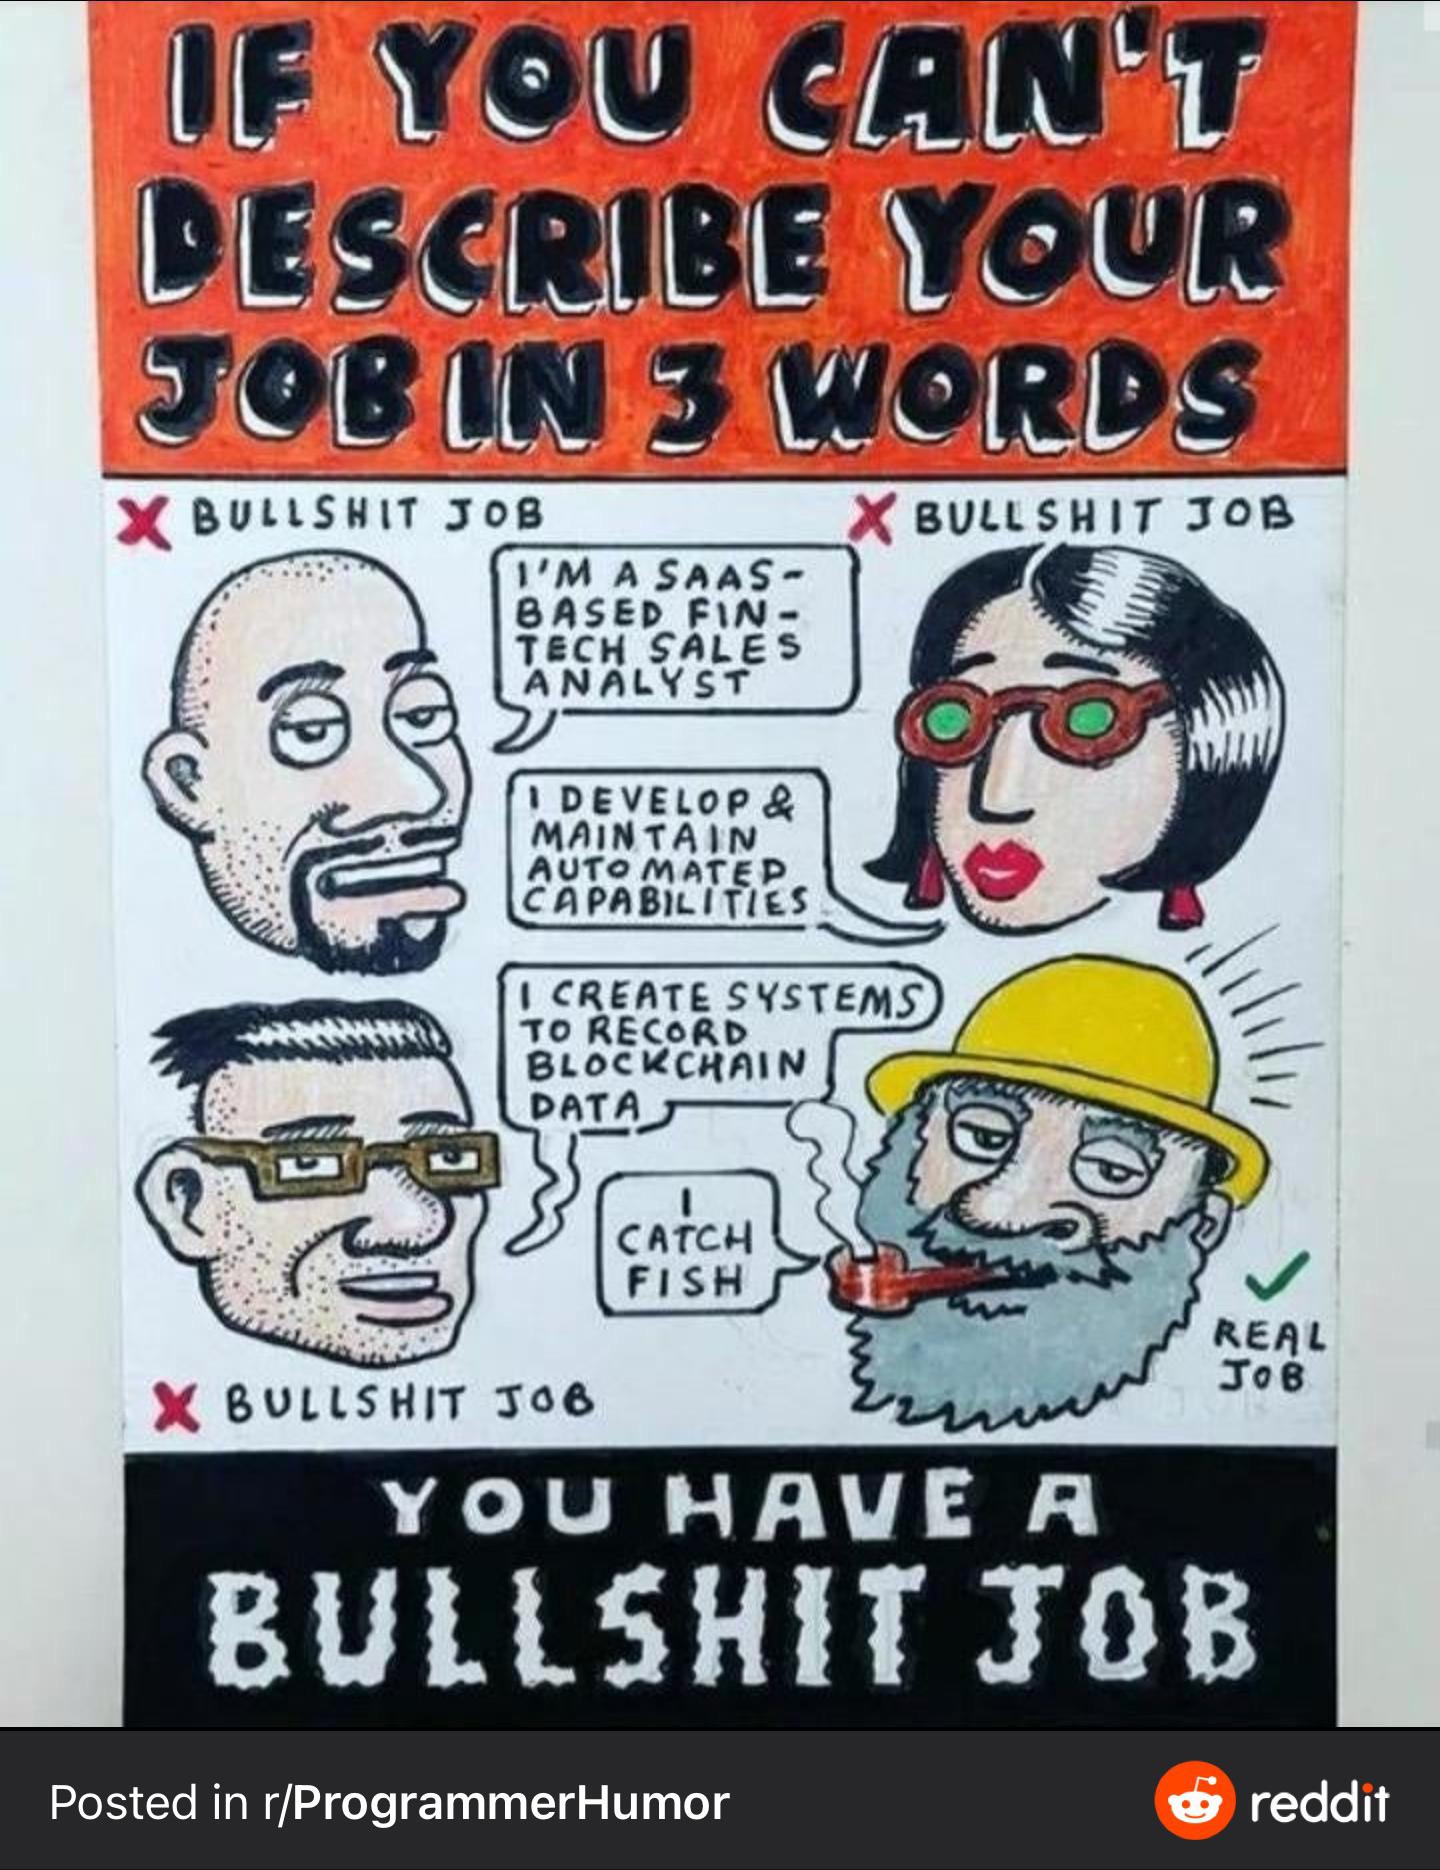 IF YOU CAN'T
DESCRIBE YOUR
JOB IN 3 WORDS
X BULLSHIT JOB
X BULLSHIT JOB
I'M A SAAS-
BASED FIN-
TECH SALES
ANALYST
I DEVELOP &
MAINTAIN
AUTOMATED
CAPABILITIES
I CREATE SYSTEMS
TO RECORD
BLOCKCHAIN
DATA
I
CATCH
FISH
REAL
JOB
X BULLSHIT JOB
YOU HAVE A
BULLSHIT JOB
Posted in r/ProgrammerHumor
reddit